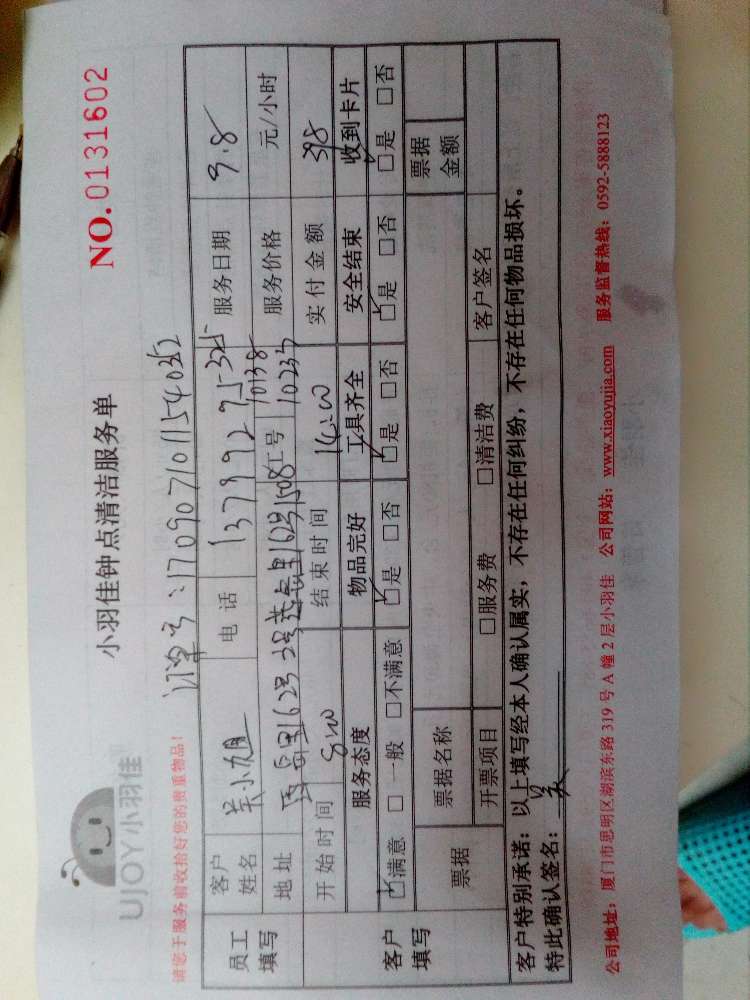 UJOY小羽佳
小羽佳钟点清洁服务单
NO.0131602
请您于服务前收拾好您的贵重物品!
订单号:170907101154052
员工填写 客户姓名 吴小姐 电话 服务日期 9.8
地址 工号 10138 10233 服务价格 元/小时
客户填写 开始时间 结束时间 实付金额 398
服务态度 物品完好 工具齐全 安全结束 收到卡片
☑满意 □一般 □不满意 ☑是 □否 ☑是 □否 ☑是 □否 ☑是 □否
票据 票据名称 票据金额
开票项目 □服务费 □清洁费 客户签名
客户特别承诺:以上填写经本人确认属实,不存在任何纠纷,不存在任何物品损坏。
特此确认签名: 吴
公司地址:厦门市思明区湖滨东路 319 号 A 幢 2 层小羽佳 公司网站:www.xiaoyujia.com 服务监督热线:0592-5888123